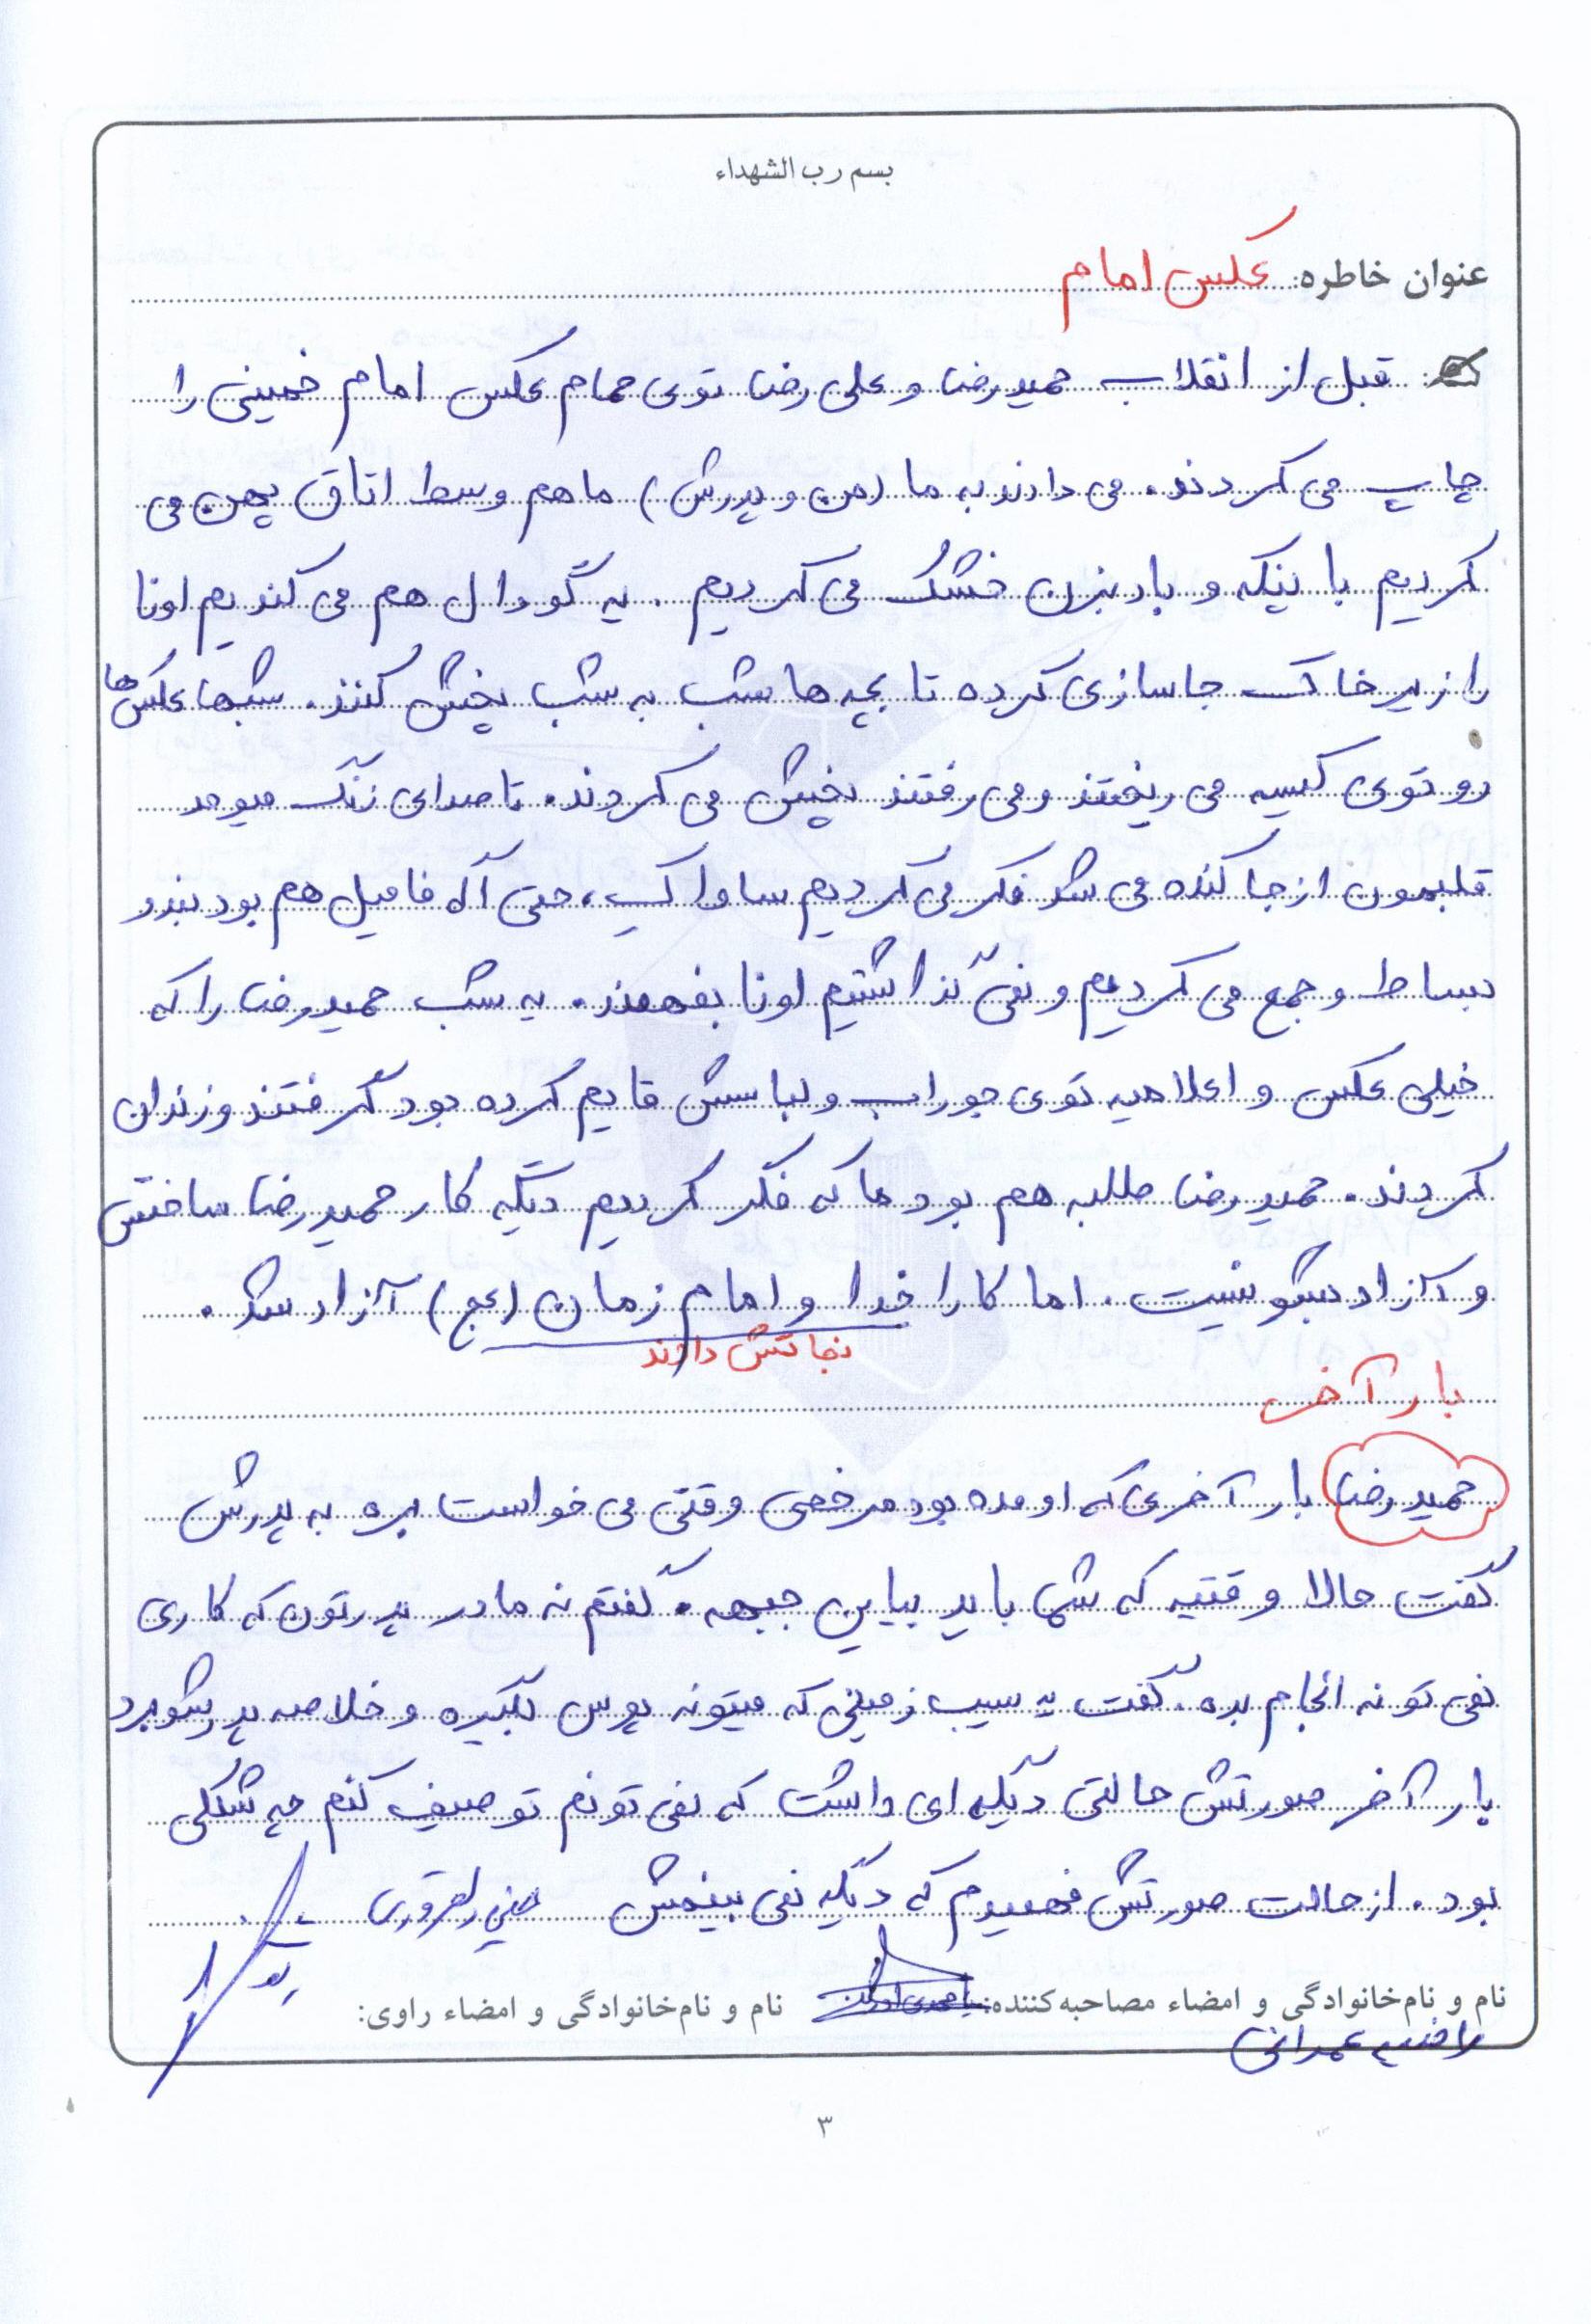 بسم رب الشهداء
عنوان خاطره: عکس امام
قبل از انقلاب حمیدرضا و علی رضا توی حمام عکس امام خمینی را
چاپ می کردند. می دادند به ما (من و پدرش) ما هم وسط اتاق پهن می
کردیم با پنکه و بادبزن خشک می کردیم. یه گودال هم می کندیم اونا
را زیر خاک جاسازی کرده تا بچه ها شب به شب پخش کنند. شبها عکس ها
رو توی کیسه می ریختند و می رفتند پخش می کردند. تا صدای زنگ میومد
قلبمون از جا کنده می شد فکر می کردیم ساواکیه، حتی اگه فامیل هم بود بندو
بساط و جمع می کردیم و نمی گذاشتیم اونا بفهمند. یه شب حمیدرضا را که
خیلی عکس و اعلامیه توی جوراب و لباسش قایم کرده بود گرفتند و زندان
کردند. حمیدرضا طلبه هم بود ما که فکر کردیم دیگه کار حمیدرضا ساختش
و آزاد بشو نیست. اما کارا خدا و امام زمان (عج) آزاد شد.
نجاتش دادند
بار آخر
حمیدرضا بار آخری که اومده بود مرخصی وقتی می خواست بره به پدرش
گفت حالا وقتیه که شما باید بیاین جبهه. گفتم نه مادر پدرتون که کاری
نمی تونه انجام بده. گفت یه سیب زمینی که میتونه پوس بگیره و خلاصه پدرشو برد
بار آخر صورتش حالتی دیگه ای داشت که نمی تونم توصیف کنم چه شکلی
بود. از حالت صورتش فهمیدم که دیگه نمی بینمش
نام و نام‌خانوادگی و امضاء مصاحبه‌کننده: نام و نام‌خانوادگی و امضاء راوی:
راضیه عمرانی
۳